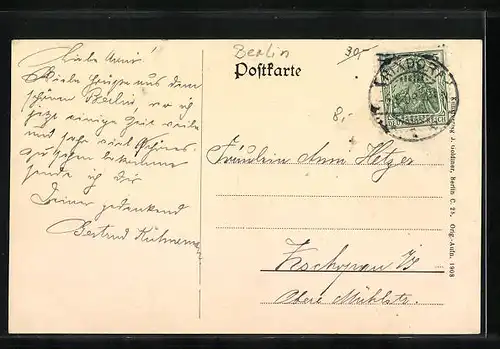 Berlin
30,-
Postkarte
8,-
Liebe Anni!
Viele Grüße aus dem
schönen Berlin, wo ich
jetzt einige Zeit weile
und sehr viel Schönes
zu sehen bekomme
sende ich Dir
Deiner gedenkend
Gertrud
Fräulein Anni Hetzer
Zschopau i/S
Obere Mühlstr.
DEUTSCHES REICH
Kunstverlag J. Goldiner, Berlin C. 25. Orig.-Aufn. 1908